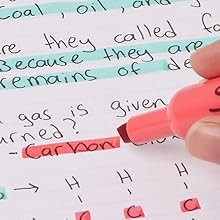 Coal, oil, and
are they called fo
Because they are
remains of de
gas is given
urned?
- Carbon
→ H H H
C C C